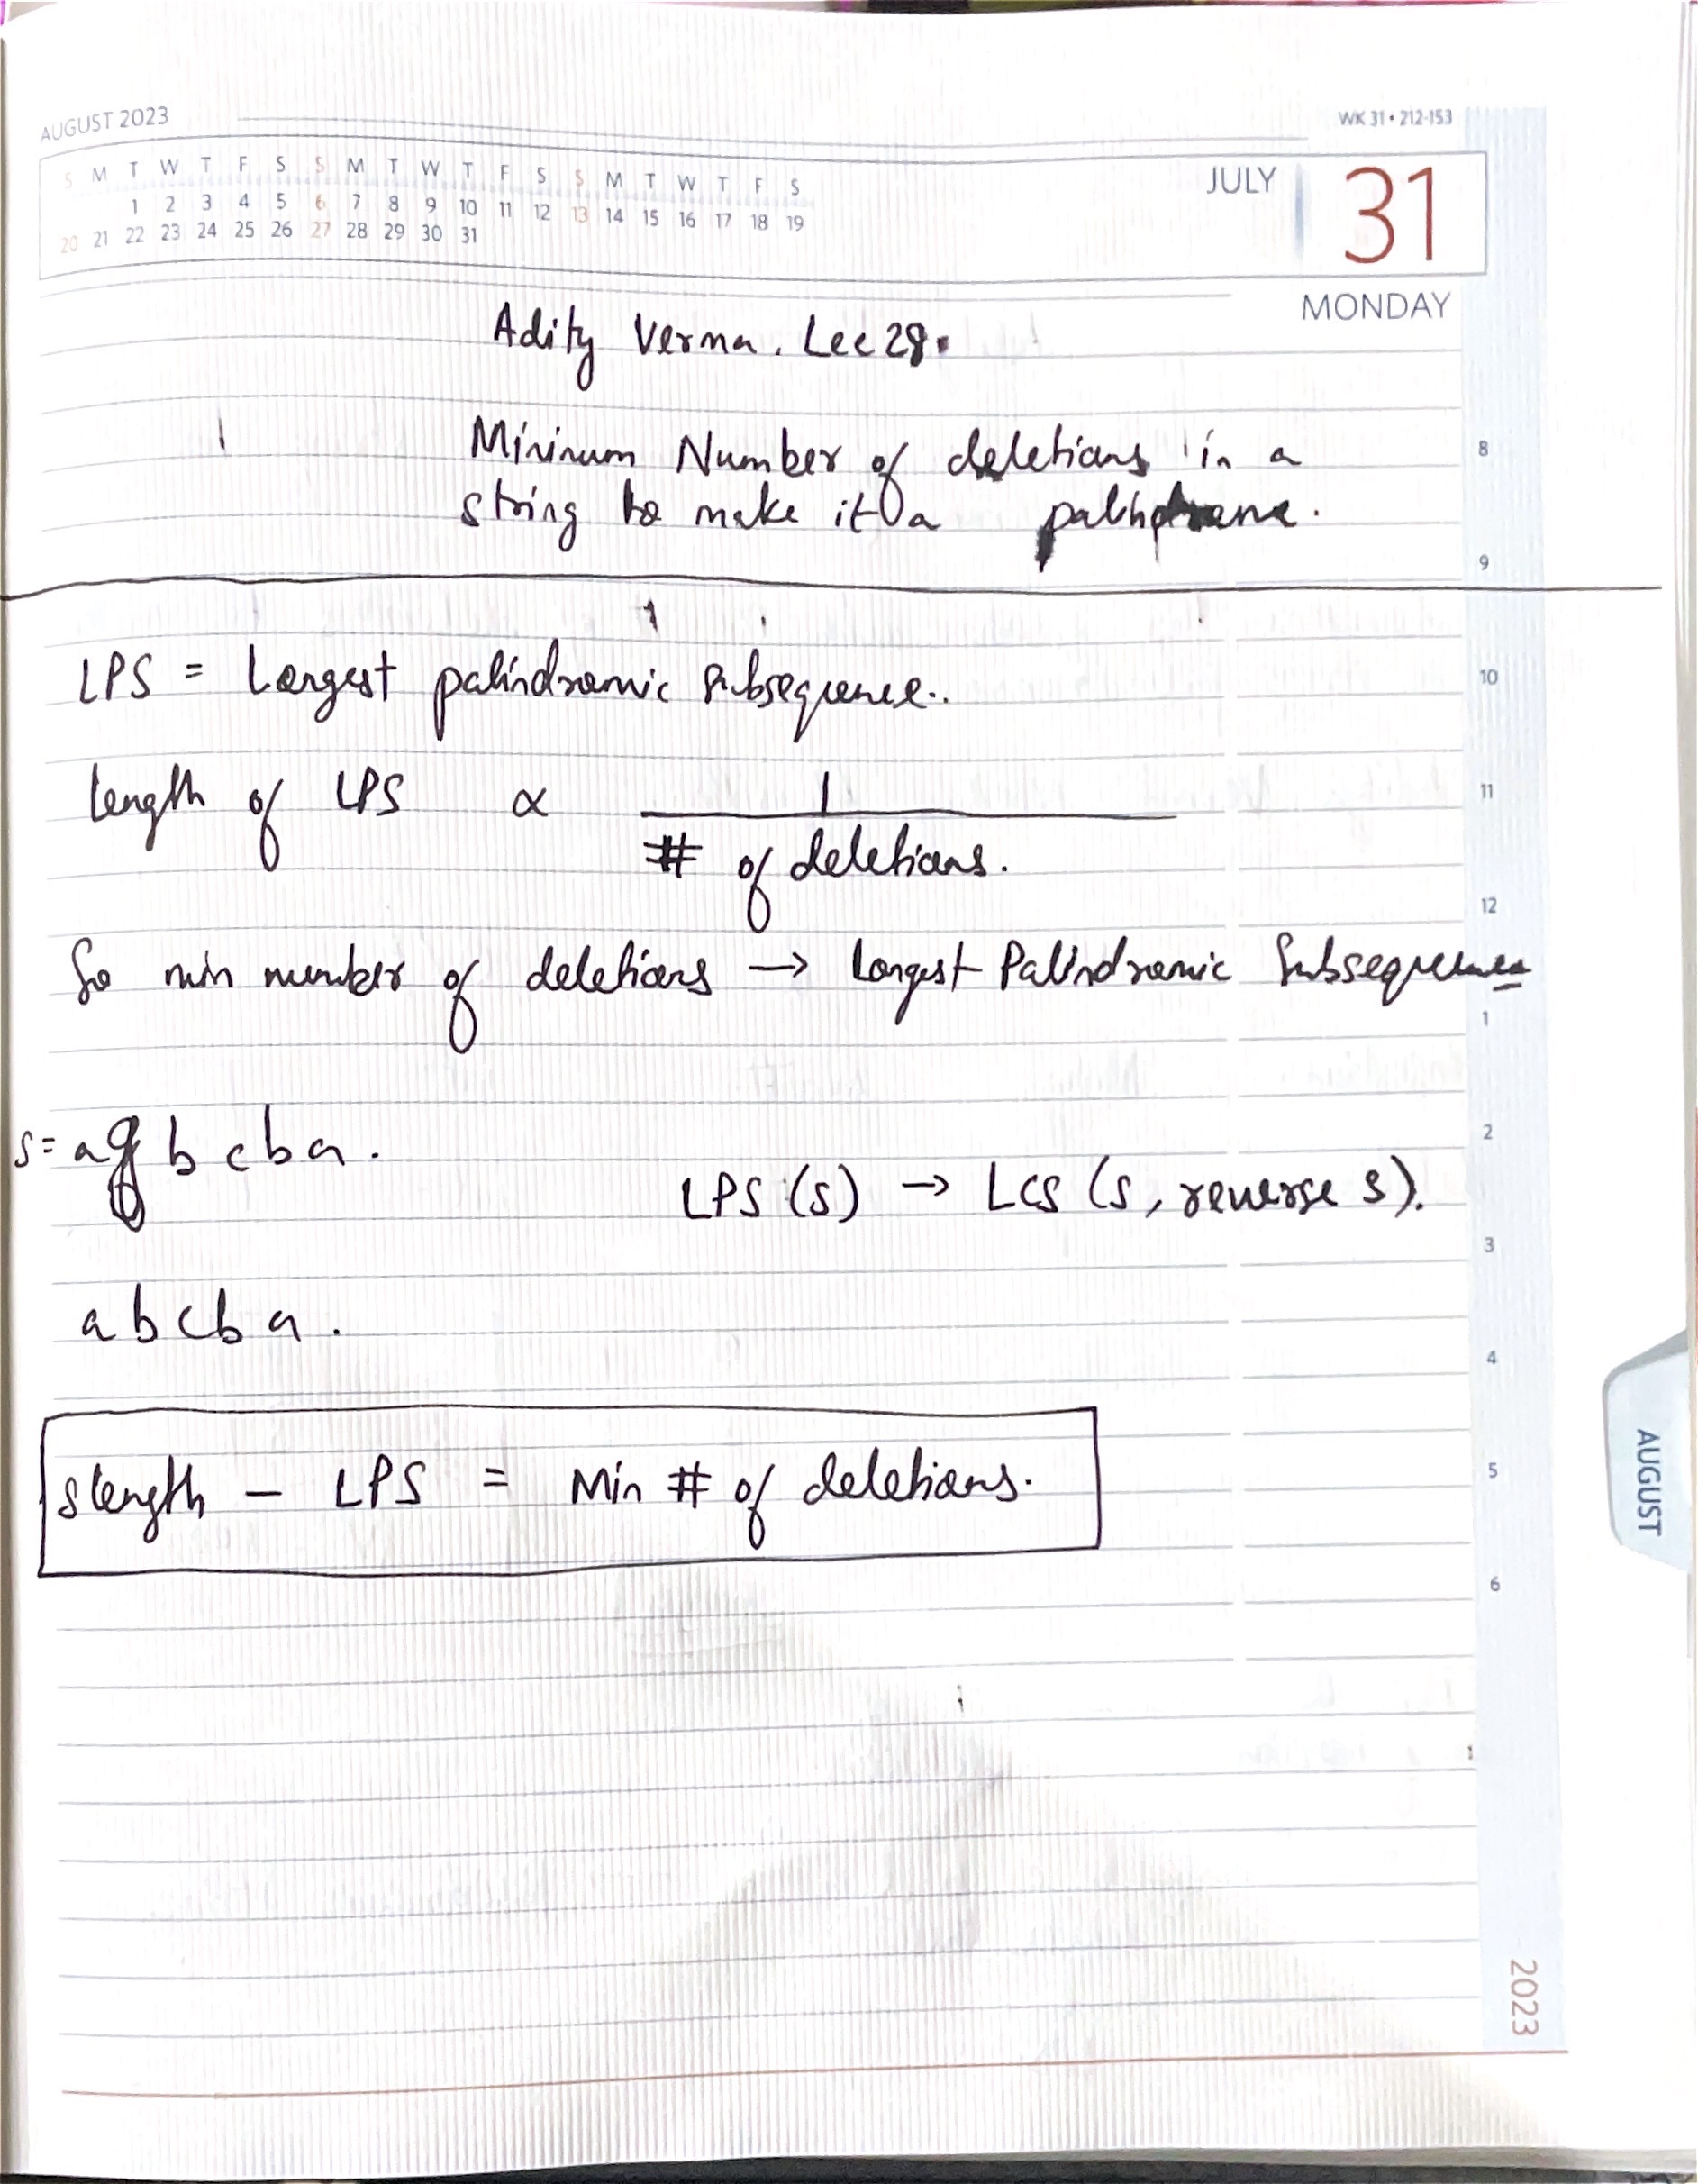 AUGUST 2023
WK 31 • 212-153
S M T W T F S S M T W T F S S M T W T F S
1 2 3 4 5 6 7 8 9 10 11 12 13 14 15 16 17 18 19
20 21 22 23 24 25 26 27 28 29 30 31
JULY 31
MONDAY
Adity Verma. Lec 28.
Minimum Number of deletions in a
8
string to make it a palindrome.
9
LPS = Longest palindromic subsequence..
10
length of LPS ∝ 1
11
# of deletions.
12
So min number of deletions → Longest Palindromic Subsequence
1
s = a g b c b a .
2
LPS (s) → LCS (s, reverse s).
3
a b c b a .
4
s length – LPS = Min # of deletions.
5
AUGUST
6
2023